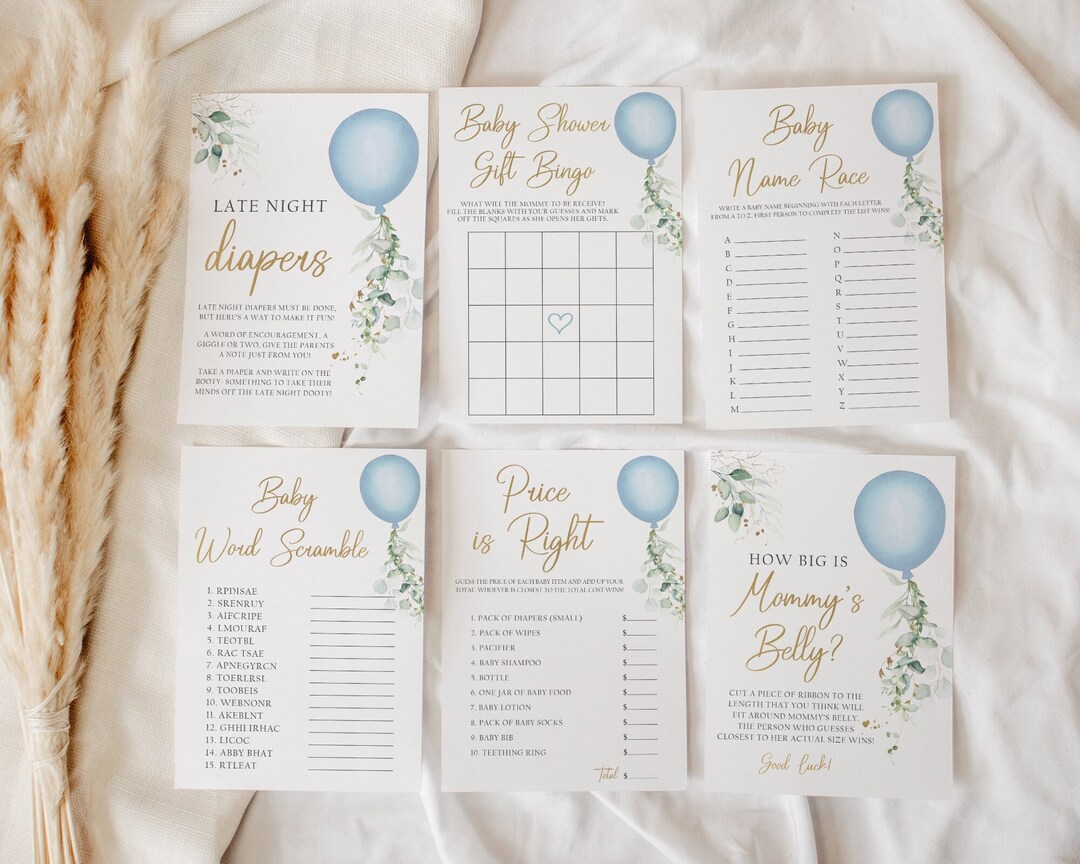 LATE NIGHT
diapers
LATE NIGHT DIAPERS MUST BE DONE,
BUT HERE'S A WAY TO MAKE IT FUN!
A WORD OF ENCOURAGEMENT, A
GIGGLE OR TWO, GIVE THE PARENTS
A NOTE JUST FROM YOU!
TAKE A DIAPER AND WRITE ON THE
BOOTY- SOMETHING TO TAKE THEIR
MINDS OFF THE LATE NIGHT DOOTY!
Baby Shower
Gift Bingo
WHAT WILL THE MOMMY-TO-BE RECEIVE?
FILL THE BLANKS WITH YOUR GUESSES AND MARK
OFF THE SQUARTS AS SHE OPENS HER GIFTS.
Baby
Name Race
WRITE A BABY NAME BEGINNING WITH EACH LETTER
FROM A TO Z. FIRST PERSON TO COMPLETE THE LIST WINS!
A
B
C
D
E
F
G
H
I
J
K
L
M
N
O
P
Q
R
S
T
U
V
W
X
Y
Z
Baby
Word Scramble
1. RPDISAE
2. SRENRUY
3. AIFCRIPE
4. LMOURAF
5. TEOTBL
6. RAC TSAE
7. APNEGYRCN
8. TOERLRSL
9. TOOBEIS
10. WEBNONR
11. AKEBLNT
12. GHHI IRHAC
13. LICOC
14. ABBY BHAT
15. RTLEAT
Price
is Right
GUESS THE PRICE OF EACH BABY ITEM AND ADD UP YOUR
TOTAL. WHOEVER IS CLOSEST TO THE TOTAL COST WINS!
1. PACK OF DIAPERS (SMALL) $
2. PACK OF WIPES $
3. PACIFIER $
4. BABY SHAMPOO $
5. BOTTLE $
6. ONE JAR OF BABY FOOD $
7. BABY LOTION $
8. PACK OF BABY SOCKS $
9. BABY BIB $
10. TEETHING RING $
Total $
HOW BIG IS
Mommy's
Belly?
CUT A PIECE OF RIBBON TO THE
LENGTH THAT YOU THINK WILL
FIT AROUND MOMMY'S BELLY.
THE PERSON WHO GUESSES
CLOSEST TO HER ACTUAL SIZE WINS!
Good luck!